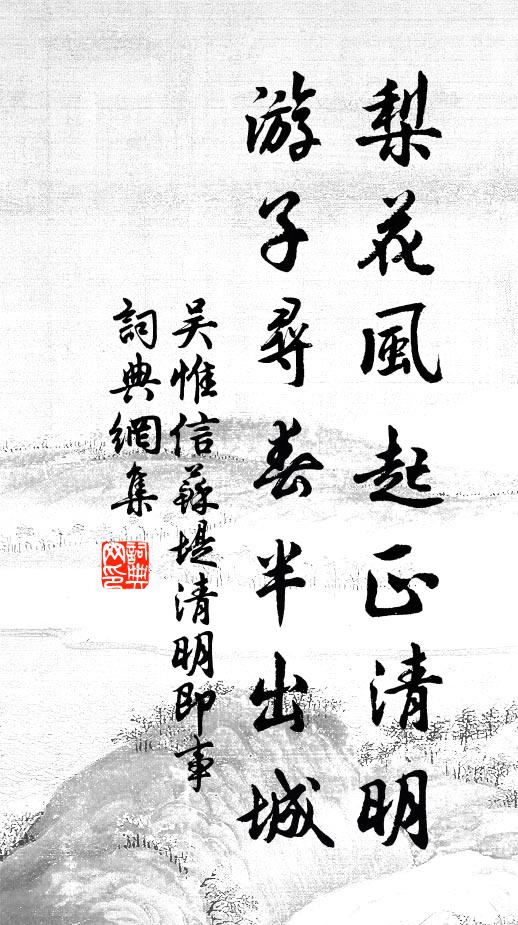 梨花風起正清明
游子尋春半出城
吴惟信蘇堤清明即事
詞典網集
詞典網印